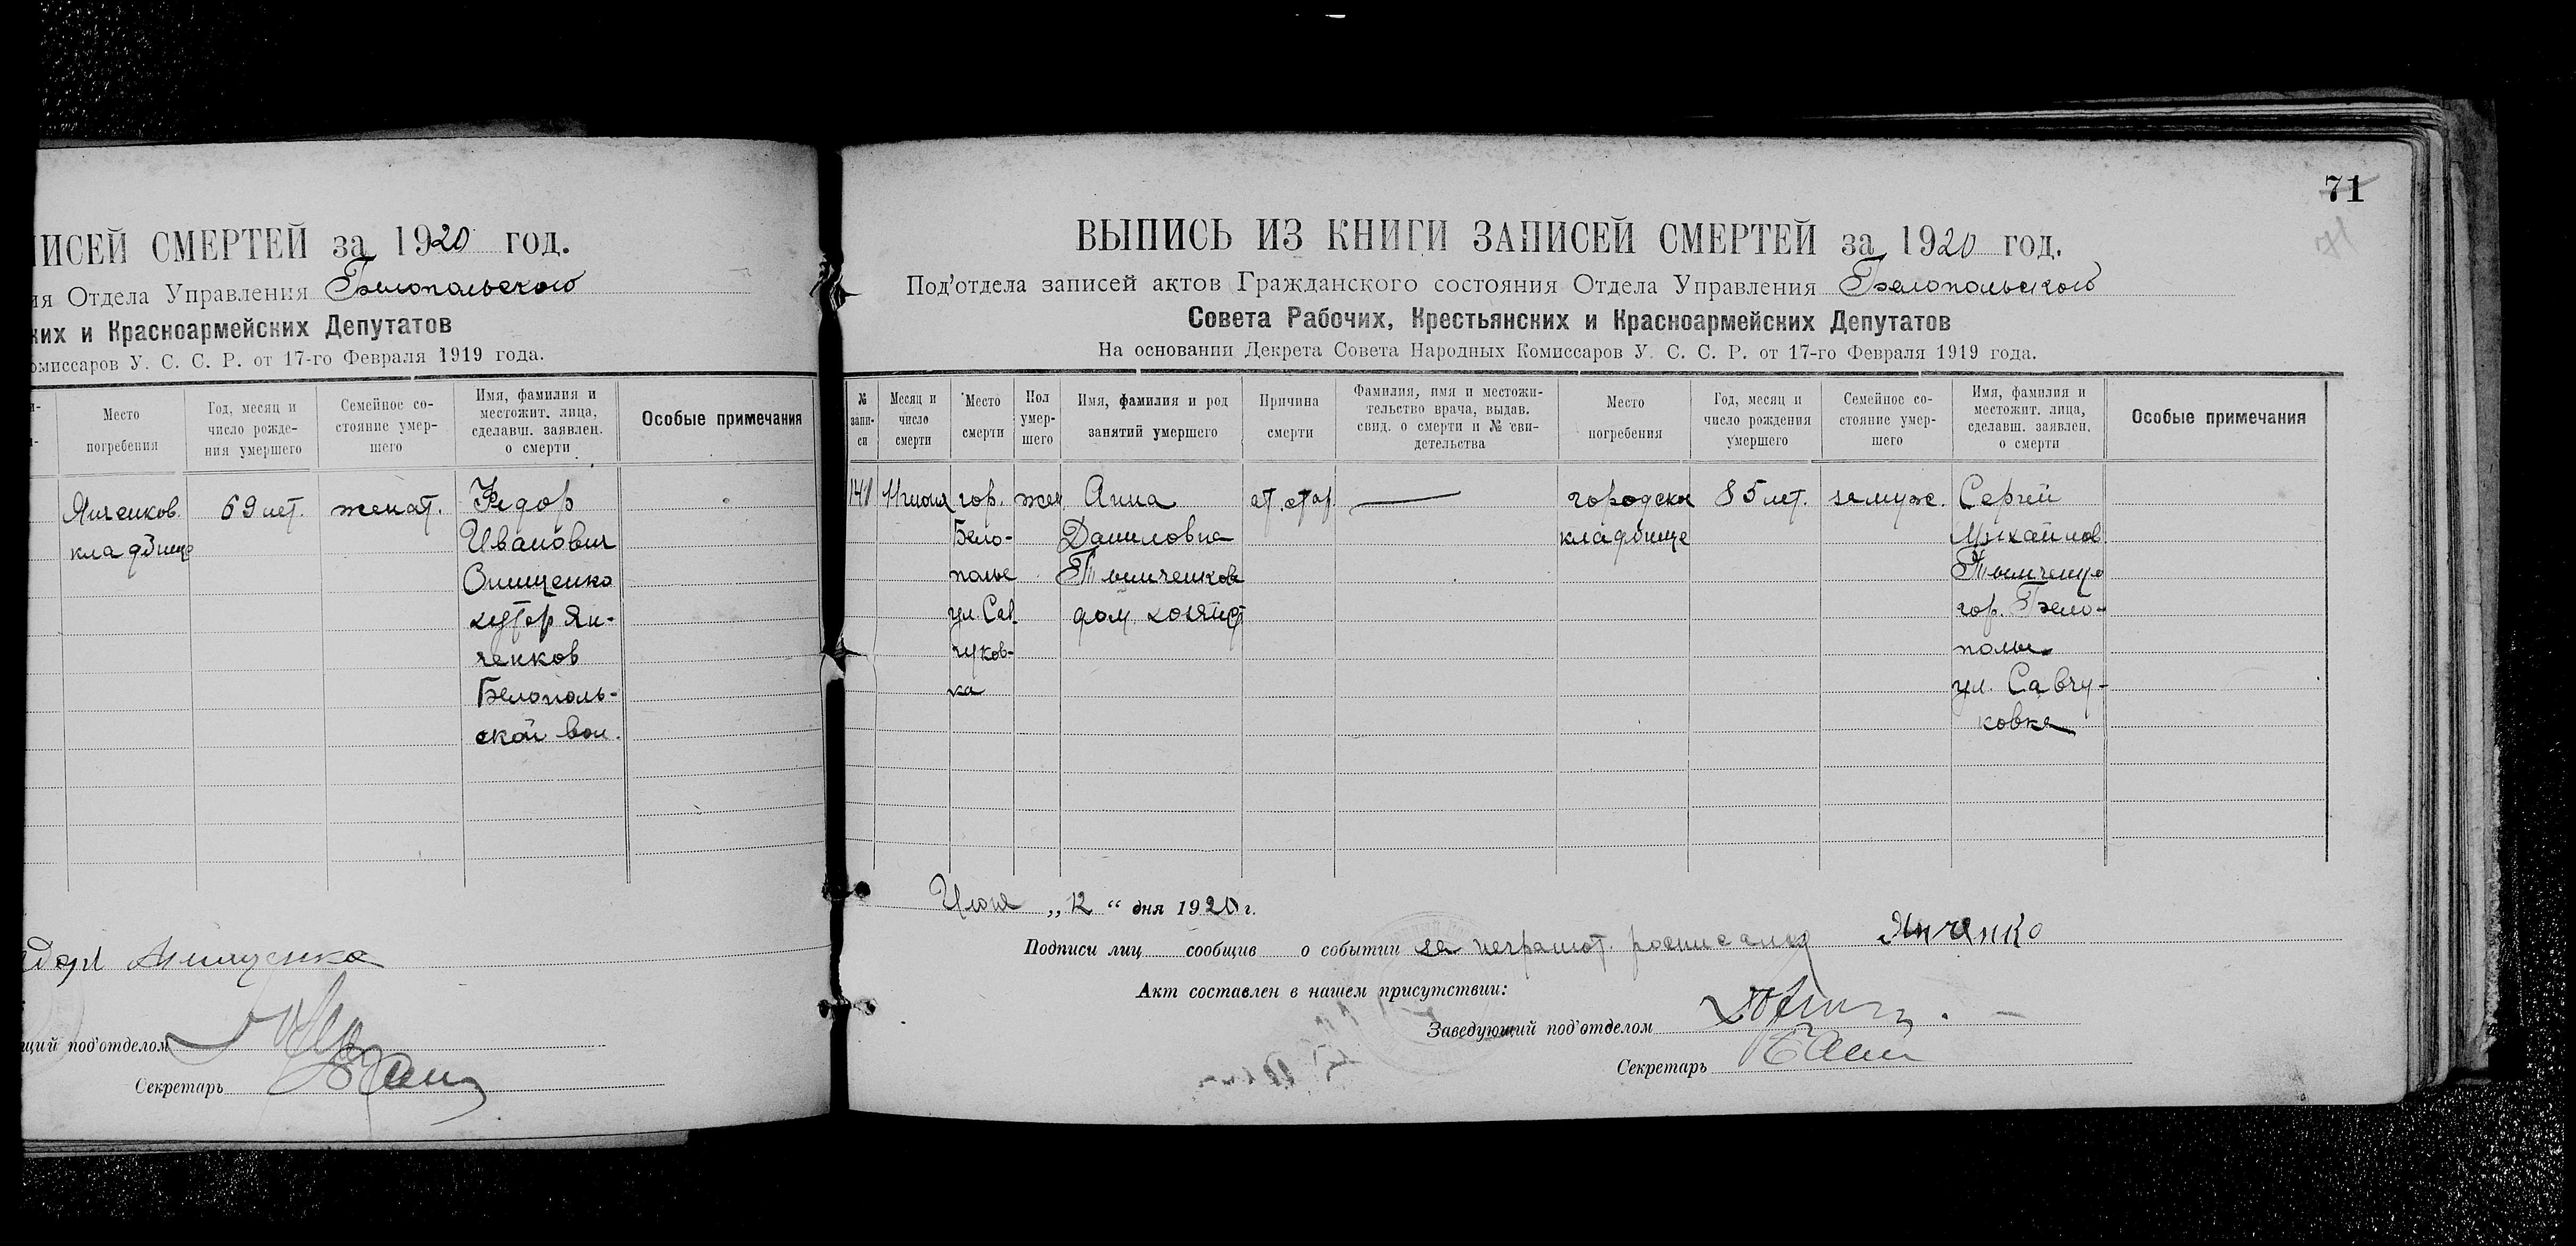 ПИСЕЙ СМЕРТЕЙ за 1920 год.
ия Отдела Управления Белопольского
ких и Красноармейских Депутатов
омиссаров У. С. С. Р. от 17-го Февраля 1919 года.
Место погребения
Год, месяц и число рожде-ния умершего
Семейное со-стояние умер-шего
Имя, фамилия и местожит. лица, сделавш. заявлен. о смерти
Особые примечания
Янченков
кладбище
69 лет.
женат.
Федор
Иванович
Онищенко
хутор Ян-
ченков
Белополь-
ской вол.
щий под'отделом
Секретарь
71
ВЫПИСЬ ИЗ КНИГИ ЗАПИСЕЙ СМЕРТЕЙ за 1920 год.
Под'отдела записей актов Гражданского состояния Отдела Управления Белопольского
Совета Рабочих, Крестьянских и Красноармейских Депутатов
На основании Декрета Совета Народных Комиссаров У. С. С. Р. от 17-го Февраля 1919 года.
№ запи-си
Месяц и число смерти
Место смерти
Пол умер-шего
Имя, фамилия и род занятий умершего
Причина смерти
Фамилия, имя и местожи-тельство врача, выдав. свид. о смерти и № сви-детельства
Место погребения
Год, месяц и число рождения умершего
Семейное со-стояние умер-шего
Имя, фамилия и местожит. лица, сделавш. заявлен. о смерти
Особые примечания
141
11 июля
гор.
Бело-
полье
ул. Сав
чуков-
ка
жен
Анна
Даниловна
дом. хозяйст
от стар.
городск
кладбище
85 лет.
замуж.
Сергей
Михайлов
гор. Бело-
полье
ул. Савчу-
ковка
Июля „12“ дня 1920 г.
Подписи лиц сообщив о событии за неграмот. росписался Янченко
Акт составлен в нашем присутствии:
Заведующий под'отделом
Секретарь